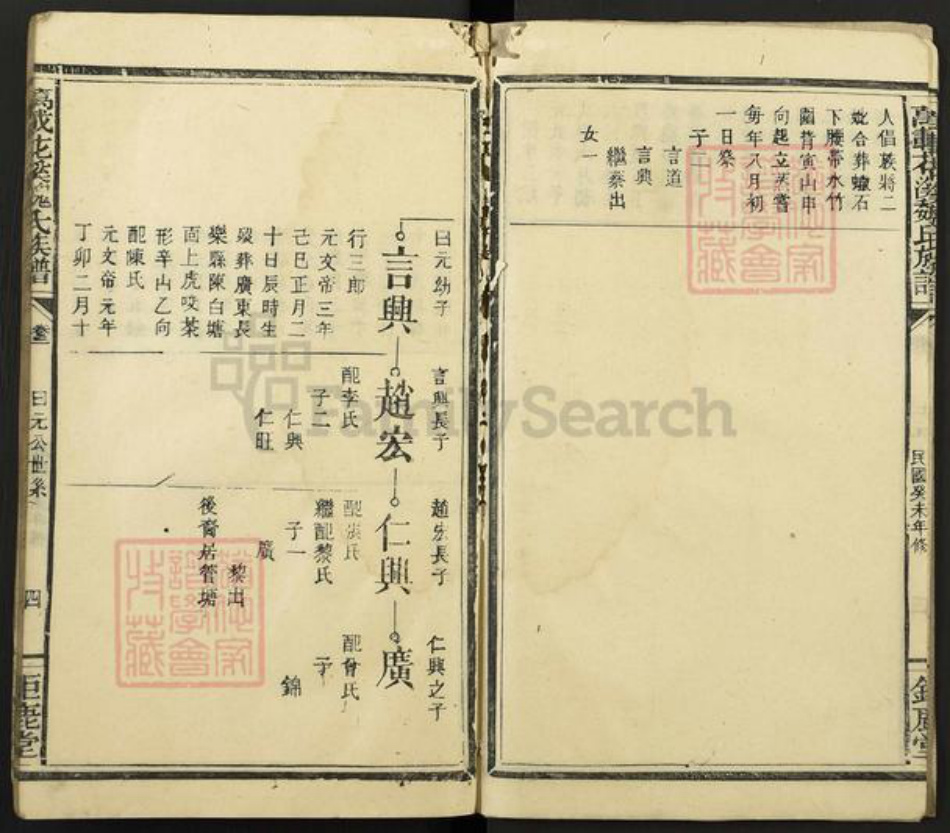 人倡義將二
妣合葬蠟石
下腰帶水竹
園背寅山申
向起立蒸嘗
每年八月初
一日祭
子二
言道
言興
繼蔡出
女一
民國癸未年修
曰元幼子
言興
行三郎
元文帝三年
己巳正月二
十日辰時生
歿葬廣東長
樂縣陳白塘
面上虎咬茶
形辛山乙向
配陳氏
元文帝元年
丁卯二月十
言興長子
趙宏
配李氏
子二
仁興
仁旺
趙宏長子
仁興
配張氏
繼配黎氏
子一
廣
黎出
後裔居管塘
仁興之子
廣
配曾氏
子一
錦
氏族譜
卷三
曰元公世系
四
鉅鹿堂
FamilySearch